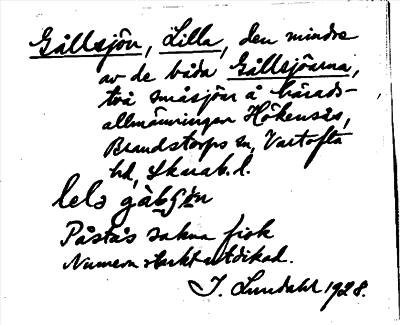 Gållsjön, Lilla, den mindre
av de båda Gållsjöarna,
två småsjön å härads-
allmänningen Hökensås,
Brandstorps sn, Vartofta
hd, Skarab. l.
Påstås sakna fisk
Numera starkt utdikad.
I. Lundahl 1928.